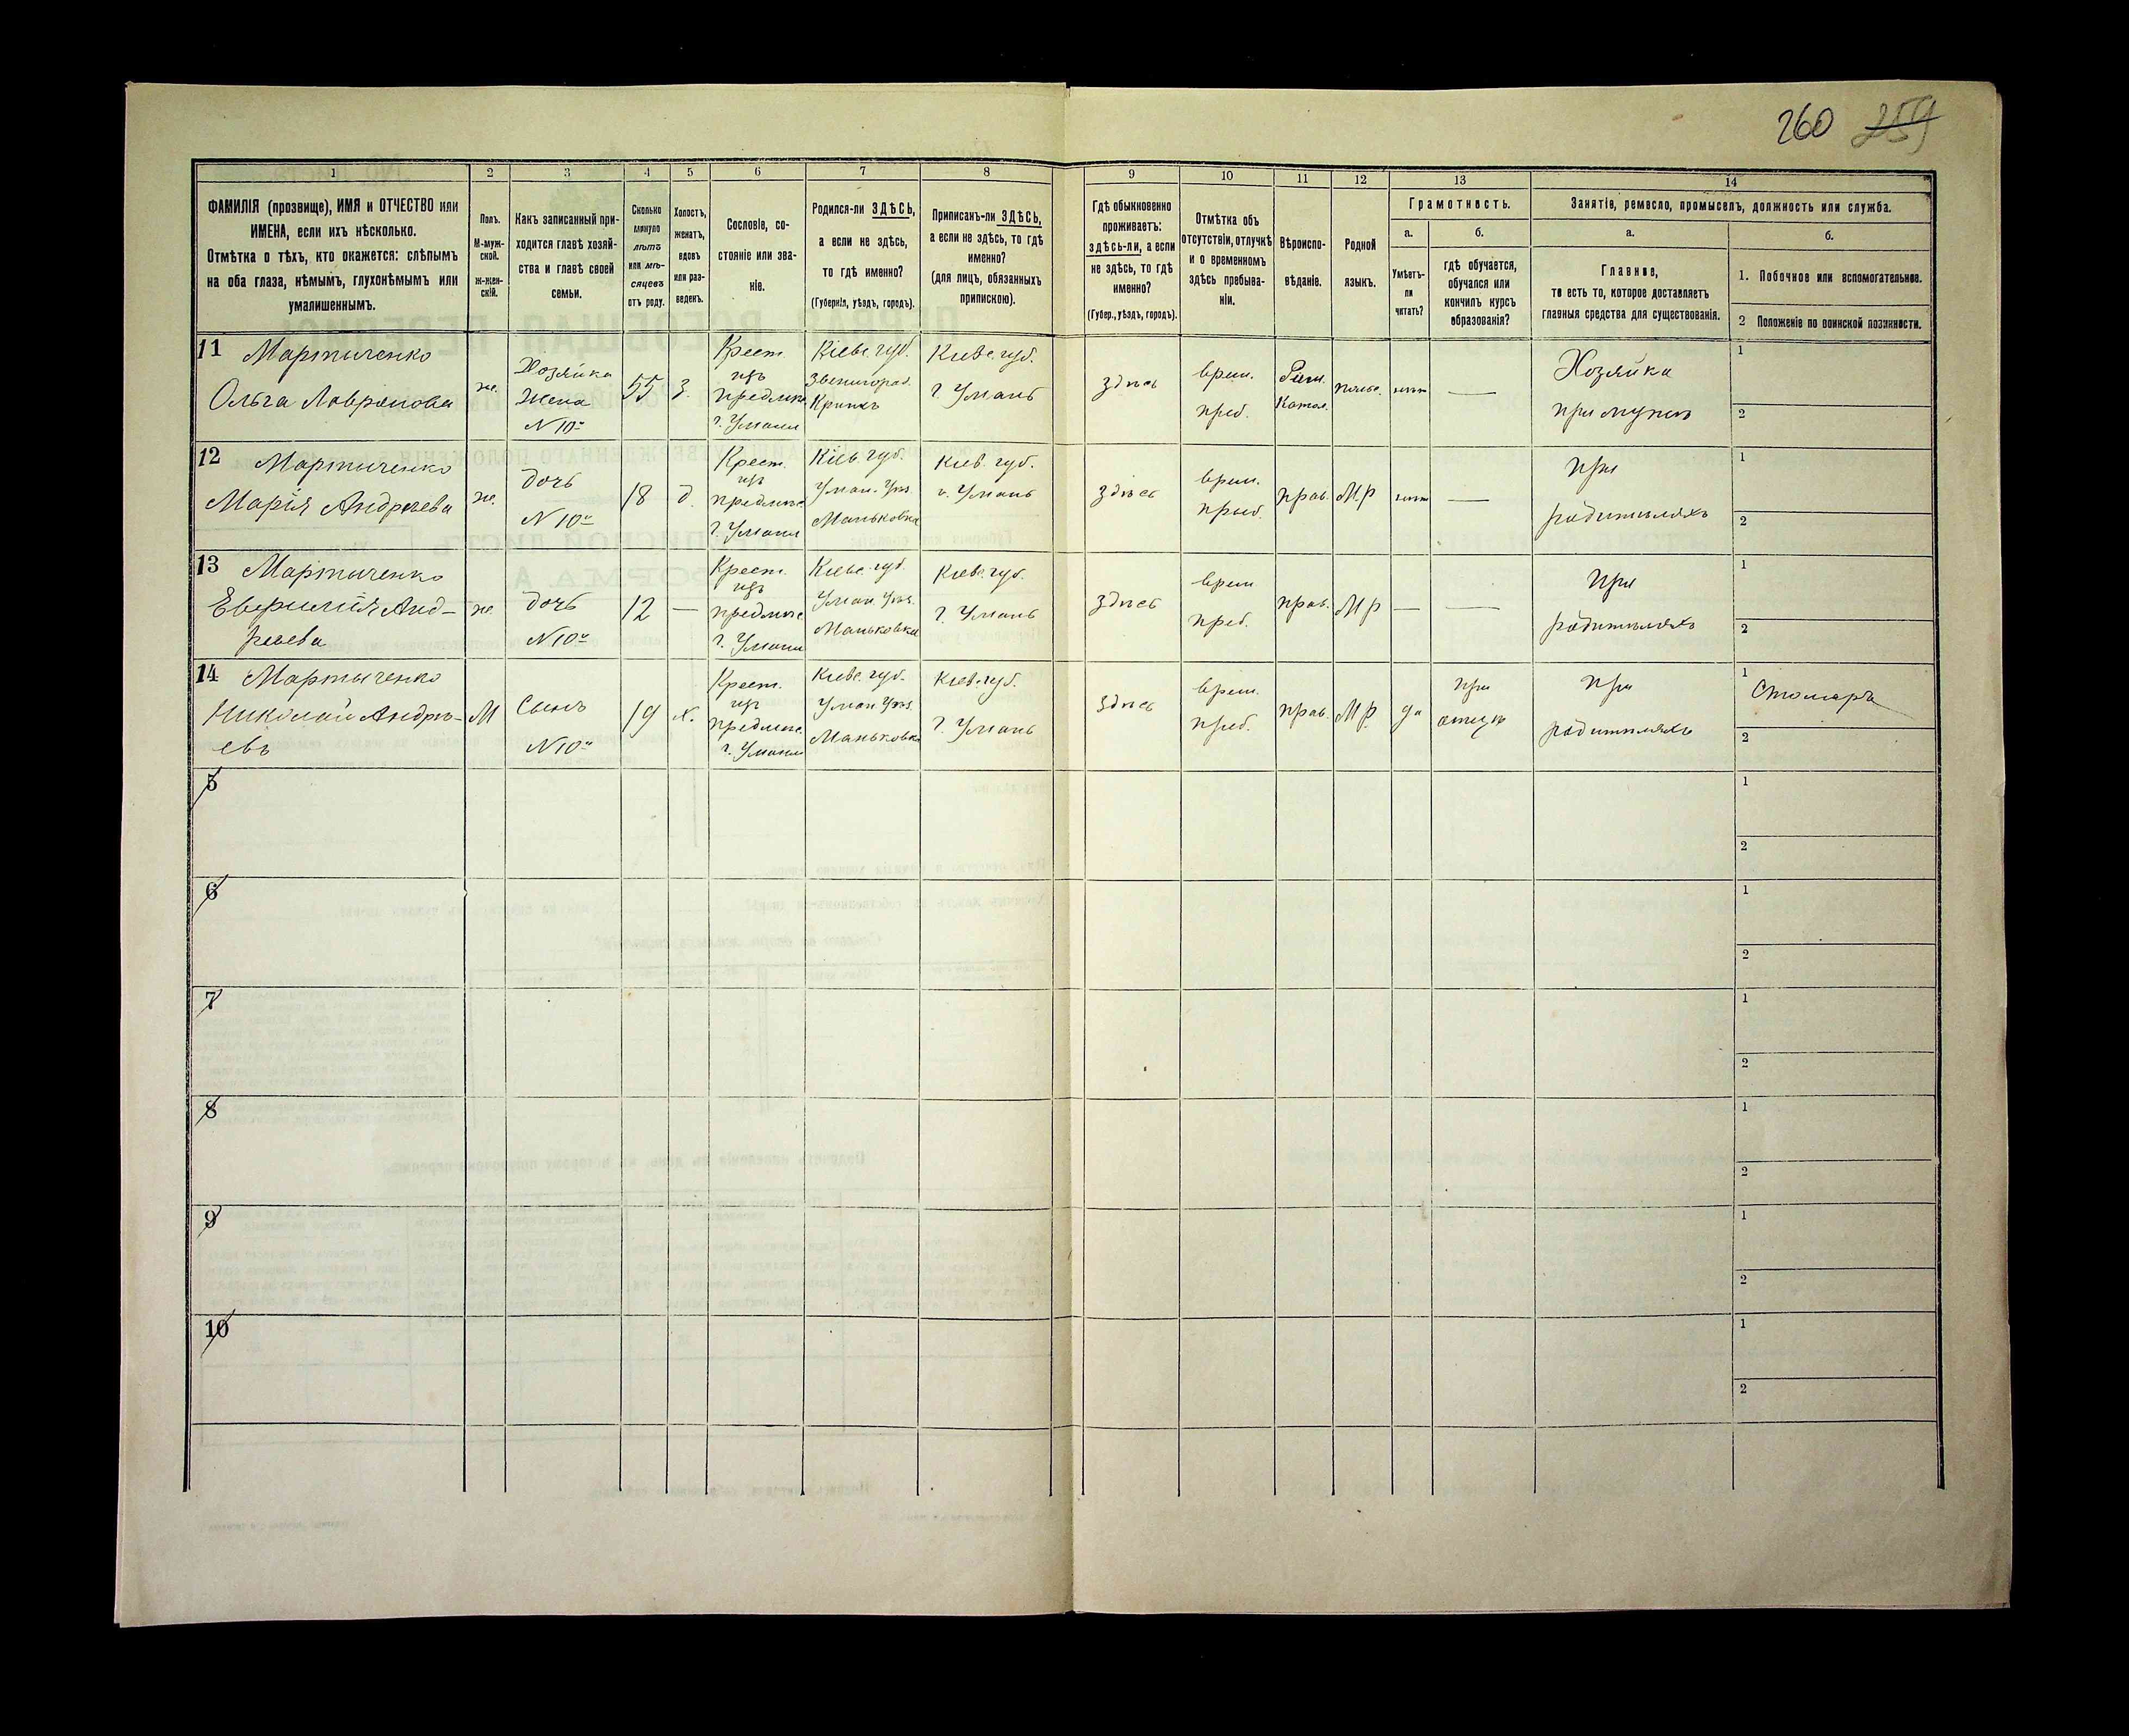 260 259
1 2 3 4 5 6 7 8 9 10 11 12 13 14
ФАМИЛІЯ (прозвище), ИМЯ и ОТЧЕСТВО или
ИМЕНА, если ихъ нѣсколько.
Отмѣтка о тѣхъ, кто окажется: слѣпымъ
на оба глаза, нѣмымъ, глухонѣмымъ или
умалишеннымъ.
Полъ.
М-муж-
ской.
ж-жен-
скій.
Какъ записанный при-
ходится главѣ хозяй-
ства и главѣ своей
семьи.
Сколько
минуло
лѣтъ
или мѣ-
сяцевъ
отъ роду.
Холостъ,
женатъ,
вдовъ
или раз-
веденъ.
Сословіе, со-
стояніе или зва-
ніе.
Родился-ли ЗДѢСЬ,
а если не здѣсь,
то гдѣ именно?
(Губернія, уѣздъ, городъ).
Приписанъ-ли ЗДѢСЬ,
а если не здѣсь, то гдѣ
именно?
(для лицъ, обязанныхъ
припискою).
Гдѣ обыкновенно
проживаетъ:
здѣсь-ли, а если
не здѣсь, то гдѣ
именно?
(Губер., уѣздъ, городъ).
Отмѣтка объ
отсутствіи, отлучкѣ
и о временномъ
здѣсь пребыва-
ніи.
Вѣроиспо-
вѣданіе.
Родной
языкъ.
Грамотность.
а.
Умѣетъ-
ли
читать?
б.
гдѣ обучается,
обучался или
кончилъ курсъ
образованія?
Занятіе, ремесло, промыселъ, должность или служба.
а.
Главное,
то есть то, которое доставляетъ
главныя средства для существованія.
б.
1. Побочное или вспомогательное.
2 Положеніе по воинской повинности.
11 Мартыченко
Ольга
ж.
Хозяйка
жена
N 10й
55
З.
Крест.
изъ
г. Умани
Кіевс. губ.
Звенигород.
Кіевс. губ.
г. Умань
здѣсь
врем.
преб.
Рим.
Катол.
польс.
нѣтъ
—
Хозяйка
при мужѣ
1
2
12 Мартыченко
Марія Андреева
ж.
дочь
N 10й
18
д.
Крест.
изъ
г. Умани
Кіев. губ.
Уман. Уѣз.
Маньковка
Кіев. губ.
г. Умань
здѣсь
врем.
преб.
прав.
М.р
нѣтъ
—
при
родителяхъ
1
2
13 Мартыченко
Анд-
реева
ж.
дочь
N 10й
12
—
Крест.
изъ
г. Умани
Кіевс. губ.
Уман Уѣз.
Маньковка
Кіевс. губ.
г. Умань
здѣсь
врем
преб.
прав.
М р
—
—
при
родителяхъ
1
2
14 Мартыченко
Николай Андре-
евъ
М
Сынъ
N 10й
19
х.
Крест.
изъ
г. Умани
Кіевс. губ.
Уман Уѣз.
Маньковка
Кіев. губ.
г. Умань
здѣсь
врем.
преб.
прав.
М р.
да
при
отцѣ
при
родителяхъ
1
Столяръ
2
5
1
2
6
1
2
7
1
2
8
1
2
9
1
2
10
1
2